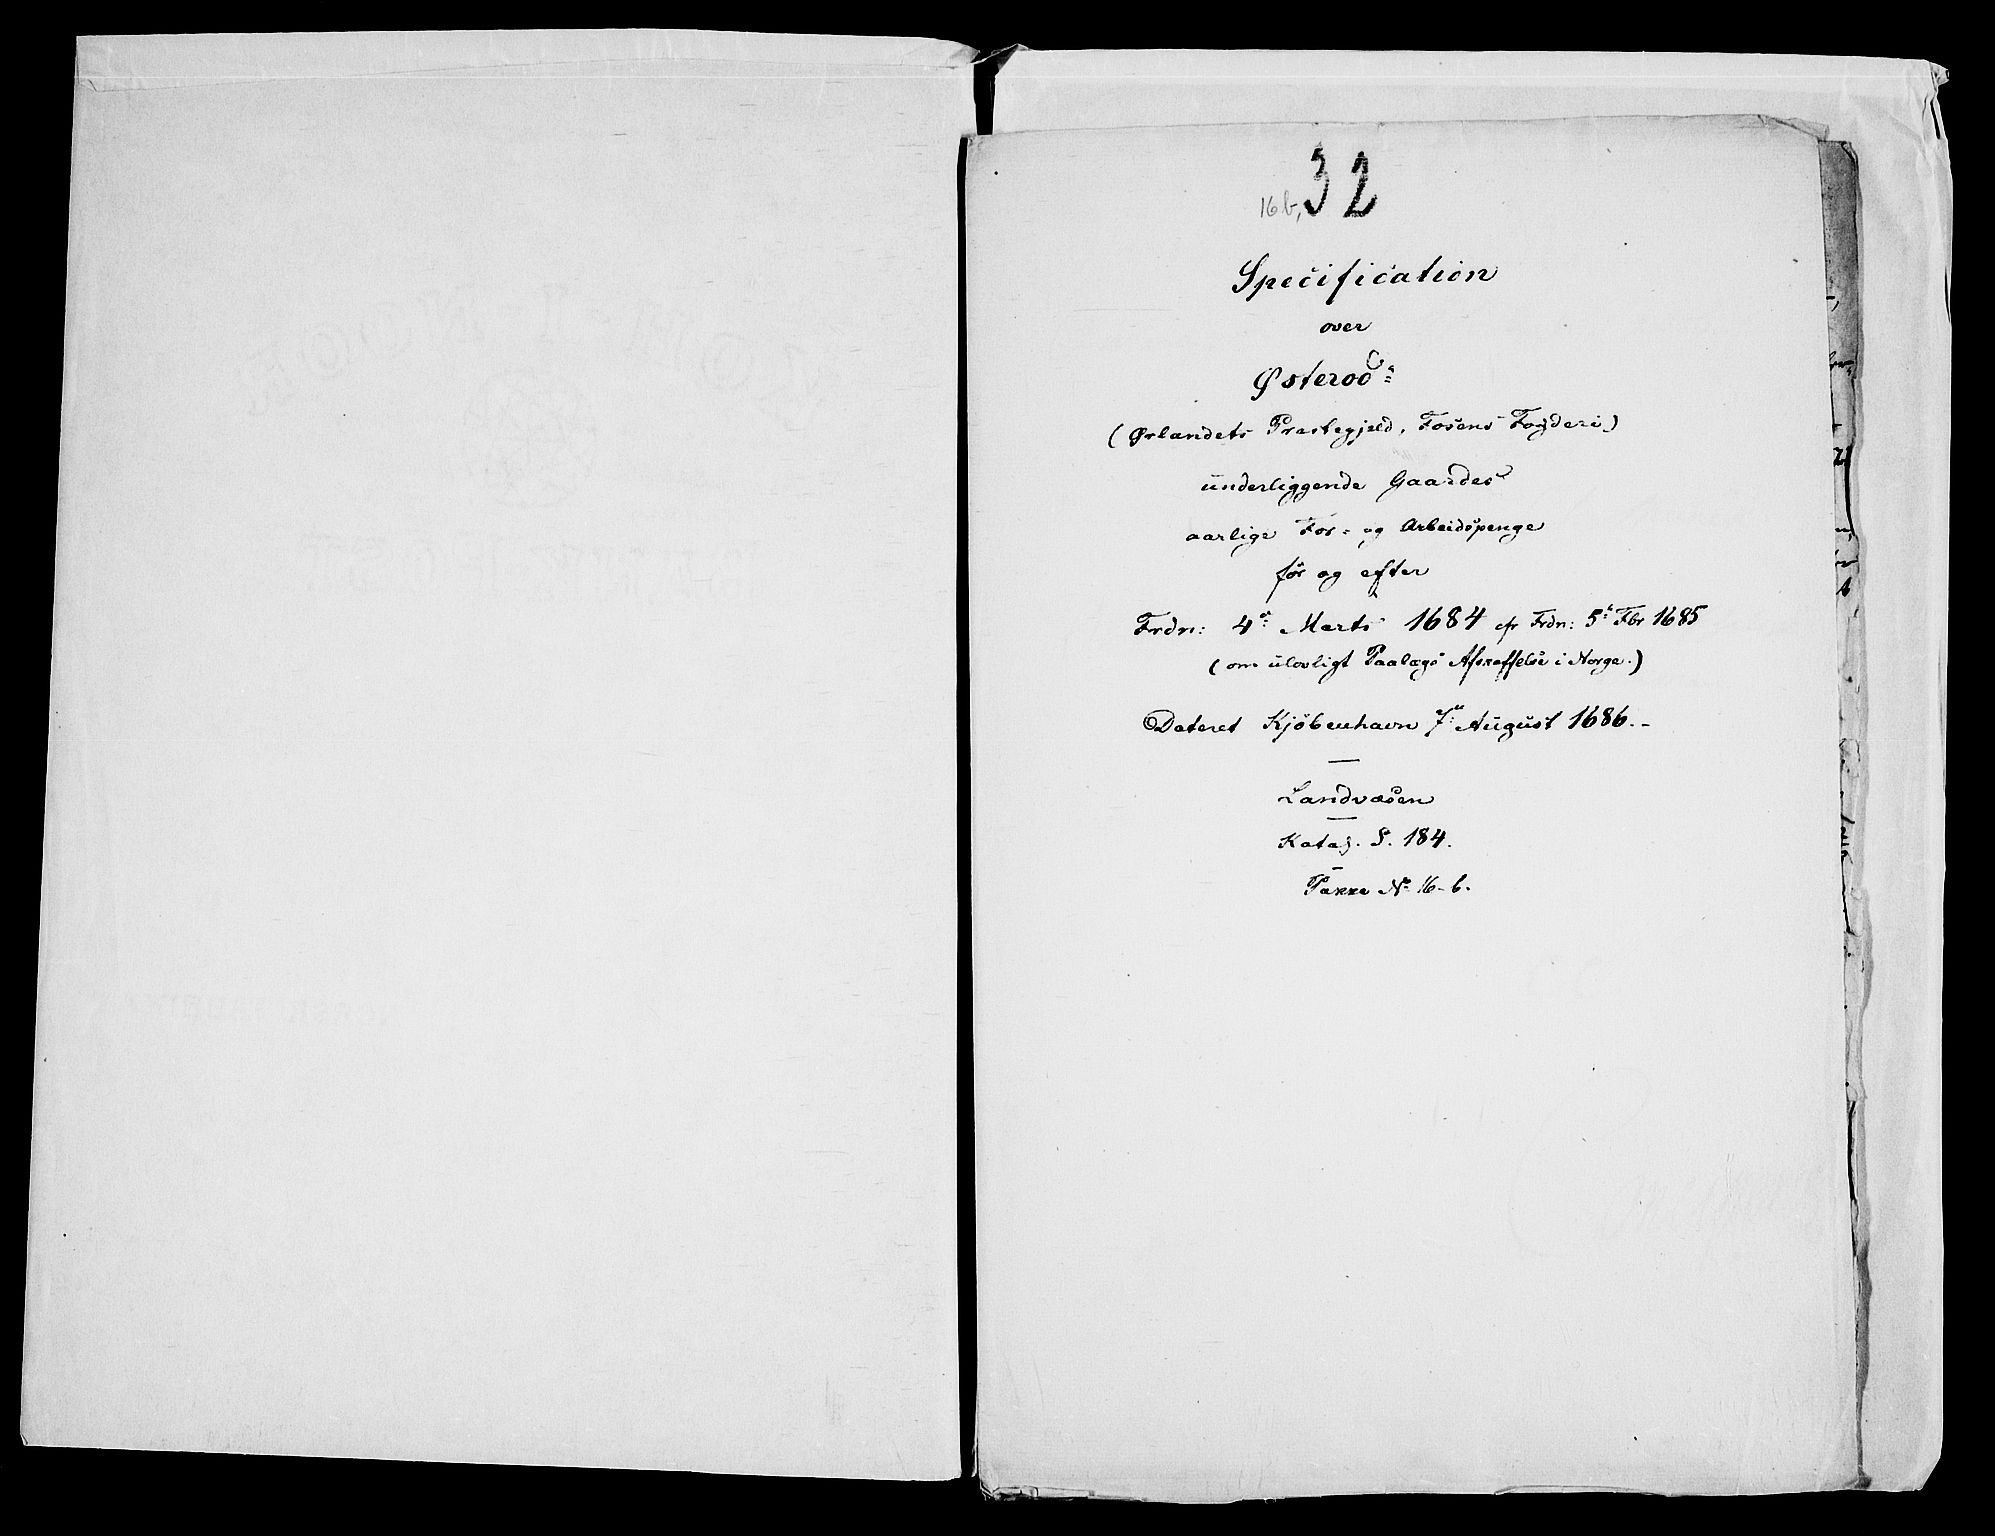 16b, 32
Specification
over
Østeraad
(Ørlandets Prestegjæld, Fosens Fogderi)
underliggende Gaardes
aarlige For- og Arbeidspenge
før og efter
Frdn: 4de Marts 1684 cfr Frdn: 5te Fbr 1685
(om ulovligt Paalægs Afskaffelse i Norge.)
Dateret Kjøbenhavn 7de August 1686.-
Landvæsen
Katag. S. 184.
Pakke No 16-b.